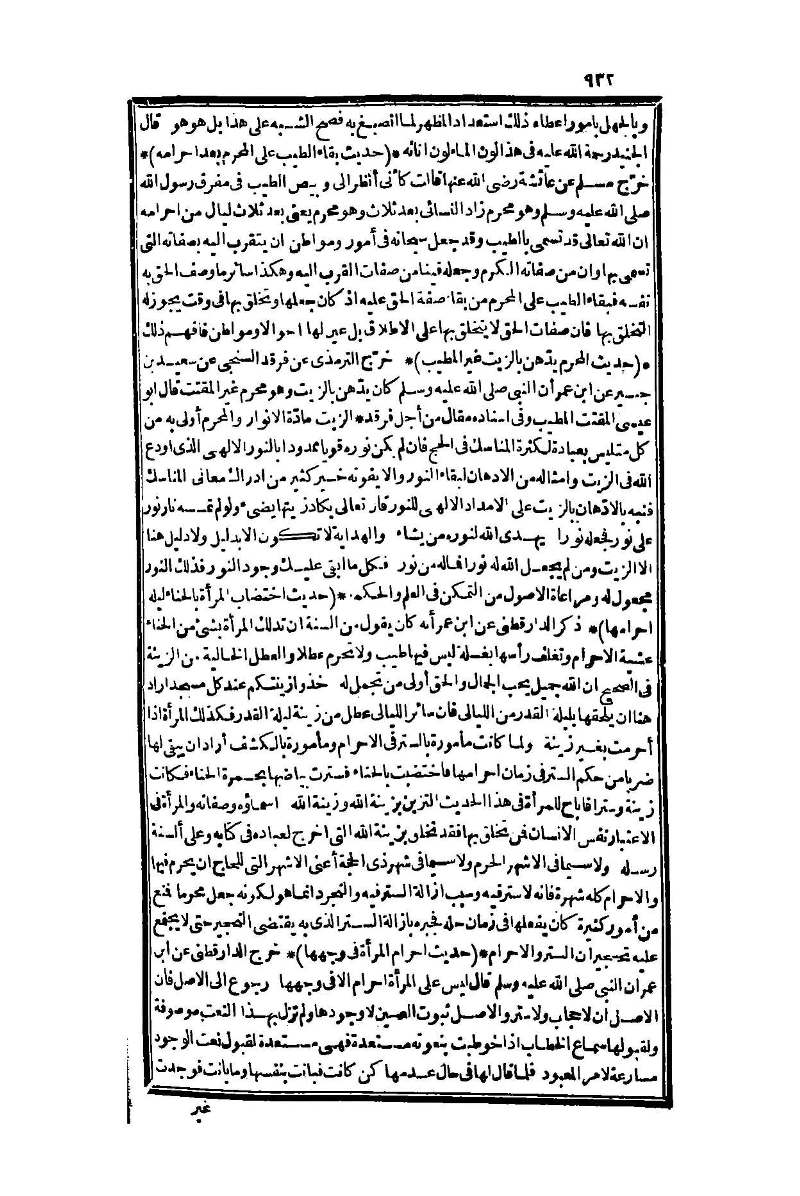 ٩٣٢
وبالجهل بأمور اعطاه ذلك استعداد المظهر لما انصبغ به فصح الشبه على هذا بل هو هو قال
الجنيد رحمة الله عليه في هذا لون الماء لون انائه *(حديث بقاء الطيب على المحرم بعد احرامه)*
خرّج مسلم عن عائشة رضى الله عنها قالت كأنى أنظر الى وبيص الطيب فى مفرق رسول الله
صلى الله عليه وسلم وهو محرم زاد النسائى بعد ثلاث وهو محرم يعنى بعد ثلاث ليال من احرامه
ان الله تعالى قد تسمى بالطيب وقد جعل سبحانه فى أمور ومواطن ان يتقرب اليه بصفاته التى
تسمى بها وان من صفاته الكرم وجعله فينا من صفات القرب اليه وهكذا سائر ما وصف الحق به
نفسه فبقاء الطيب على المحرم من بقاء صفة الحق عليه اذ كان جعلها وتخلق بها فى وقت يجوز له
التخلق بها فان صفات الحق لا يتخلق بها على الاطلاق بل عين لها احوالا ومواطن فافهم ذلك
*(حديث المحرم يدّهن بالزيت غير المطيب)* خرّج الترمذى عن فرقد السنجى عن سعيد بن
جبير عن ابن عمر أن النبى صلى الله عليه وسلم كان يدّهن بالزيت وهو محرم غير المقتت قال ابو
عيسى المقتت المطيب وفى اسناده مقال من أجل فرقد * الزيت مادّة الانوار والمحرم أولى به من
كل متلبس بعبادة لكثرة المناسك فى الحج فان لم يكن نوره قويا ممدودا بالنور الالهى الذى اودع
الله فى الزيت وامثاله من الادهان لبقاء النور والا يفوته خير كثير من ادراك معانى المناسك
فنبه بالادّهان بالزيت على الامداد الالهى للنور قال تعالى يكاد زيتها يضىء ولو لم تمسسه نار نور
على نور فجعله نورا يهدى الله لنوره من يشاء والهداية لا تكون الا بدليل ولا دليل هنا
الا الزيت ومن لم يجعل الله له نورا فما له من نور فكل ما ابقى عليك وجود النور فذلك النور
مجعول له ومراعاة الاصول من التمكن فى العلم والحكمة *(حديث اختضاب المرأة بالحناء ليلة
احرامها)* ذكر الدارقطنى عن ابن عمر أنه كان يقول من السنة ان تدلك المرأة بشئ من الحناء
عشية الاحرام وتغلف رأسها بغسلة ليس فيها طيب ولا تحرم عطلا والعطل الخالية من الزينة
فى الصحيح ان الله جميل يحب الجمال والحق أولى من تجمل له خذوا زينتكم عند كل مسجد اراد
هنا ان يلحقها بليلة القدر من الليالى فان سائر الليالى عطل من زينة ليلة القدر فكذلك المرأة اذا
أحرمت بغير زينة ولما كانت مأمورة بالستر فى الاحرام ومأمورة بالكشف أراد ان يبقى لها
ضربا من حكم الستر فى زمان احرامها فاختضبت بالحناء فسترت بياضها بحمرة الحناء فكانت
زينة وسترا فاباح للمرأة فى هذا الحديث التزين بزينة الله وزينة الله اسماؤه وصفاته والمرأة فى
الاعتبار نفس الانسان فمن تخلق بها فقد تحلى بزينة الله التى اخرج لعباده فى كتابه وعلى ألسنة
رسله ولا سيما فى الاشهر الحرم ولا سيما فى شهر ذى الحجة أعنى الاشهر التى للحاج ان يحرم فيها
والاحرام كله شهرة فانه لا ستر فيه وسبب ازالة الستر فيه والتجرد انما هو لكونه جعل محرما فمنع
من أمور كثيرة كان يفعلها فى زمان حله فجبره بازالة الستر الذى به يقتضى التحجير حتى لا يجمع
عليه تحجيران الستر والاحرام *(حديث احرام المرأة فى وجهها)* خرج الدارقطنى عن ابن
عمر ان النبى صلى الله عليه وسلم قال ليس على المرأة احرام الا فى وجهها رجوع الى الاصل فان
الاصل ان لا حجاب ولا ستر والاصل ثبوت العين لا وجودها ولم تزل بهذا النعت موصوفة
ولقبولها سماع الخطاب اذا خوطبت بنعوته مستعدة فهى مستعدة لقبول نعت الوجود
مسارعة لامر المعبود فلما قال لها فى حال عدمها كن كانت فبانت بنفسها وما بانت فوجدت
غير